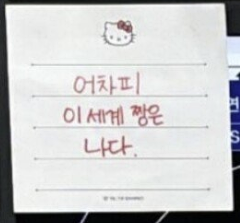 어차피
이세계 짱은
나다.